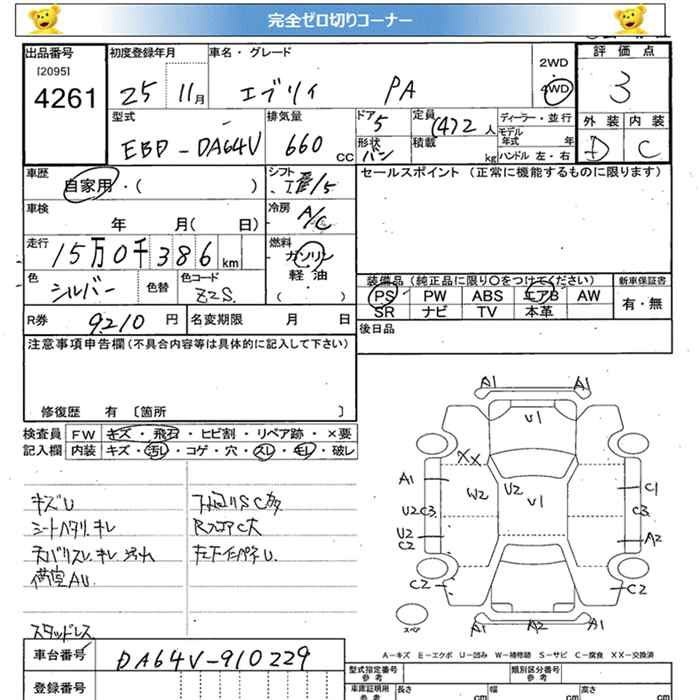 完全ゼロ切りコーナー
出品番号 初度登録年月 車名・グレード 評価点
[2095]
4261 25 11月 エブリィ PA 2WD 4WD 3
型式 排気量 ドア 定員 ディーラー・並行 外装 内装
EBD-DA64V 660 CC 5 (4)2人 モデル年式 年 D C
形状 バン 積載 kg ハンドル 左・右
車歴 シフト セールスポイント (正常に機能するものに限ります)
自家用・( )
車検 冷房 A/C
年 月( 日)
走行 燃料
15万0千386km ガソリン
軽油
( )
色 色替 色コード 装備品(純正品に限り○をつけてください) 新車保証書
シルバー Z2S PS PW ABS エアB AW 有・無
SR ナビ TV 本革
R券 9210円 名変期限 月 日 後日品
注意事項申告欄(不具合内容等は具体的に記入して下さい)
修復歴 有 [箇所 ]
検査員 FW キズ・飛石・ヒビ割・リペア跡・×要
記入欄 内装 キズ・汚レ・コゲ・穴・スレ・モレ・破レ
キズU
シートヘタリ.キレ
天バリスレ.キレ
荷室AU
スタッドレス
A1 A1
U1
XX
A1 W2 U2 U1 C1
U2C3 C3
U2 A2
C2
C2 C2
スペア A1 A2 A1
A-キズ E-エクボ U-凹み W-補修跡 S-サビ C-腐食 XX-交換済
車台番号 DA64V-910229 型式指定番号 参考 類別区分番号 参考
登録番号 車庫証明用 参考 長さ cm 幅 cm 高さ cm